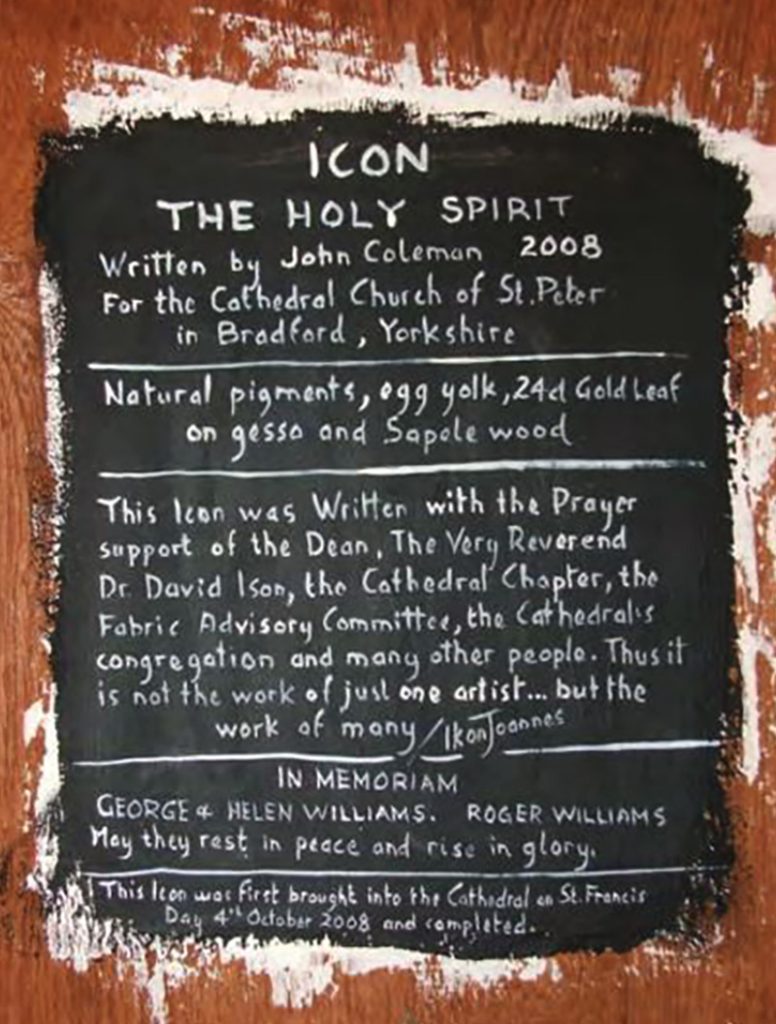 ICON
THE HOLY SPIRIT
Written by John Coleman 2008
For the Cathedral Church of St. Peter
in Bradford, Yorkshire
Natural pigments, egg yolk, 24d Gold Leaf
on gesso and Sapele wood
This Icon was Written with the Prayer
support of the Dean, The Very Reverend
Dr. David Ison, the Cathedral Chapter, the
Fabric Advisory Committee, the Cathedral's
congregation and many other people. Thus it
is not the work of just one artist... but the
work of many / IkonJoannes
IN MEMORIAM
GEORGE & HELEN WILLIAMS. ROGER WILLIAMS
May they rest in peace and rise in glory.
This Icon was first brought into the Cathedral on St. Francis
Day 4th October 2008 and completed.